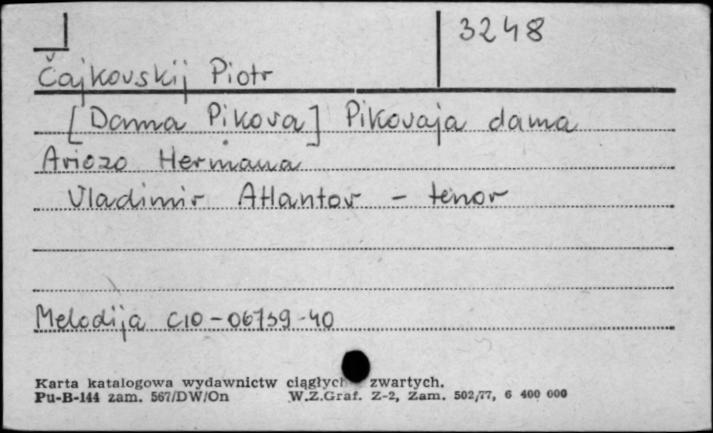 3248
Čajkovskij Piotr
[Dama Pikova] Pikovaja dama
Ariozo Hermana
Vladimir Atlantov - tenor
Melodija C10-06739-40
Karta katalogowa wydawnictw ciągłych zwartych.
Pu-B-144 zam. 567/DW/On W.Z.Graf. Z-2, Zam. 502/77, 6 400 000